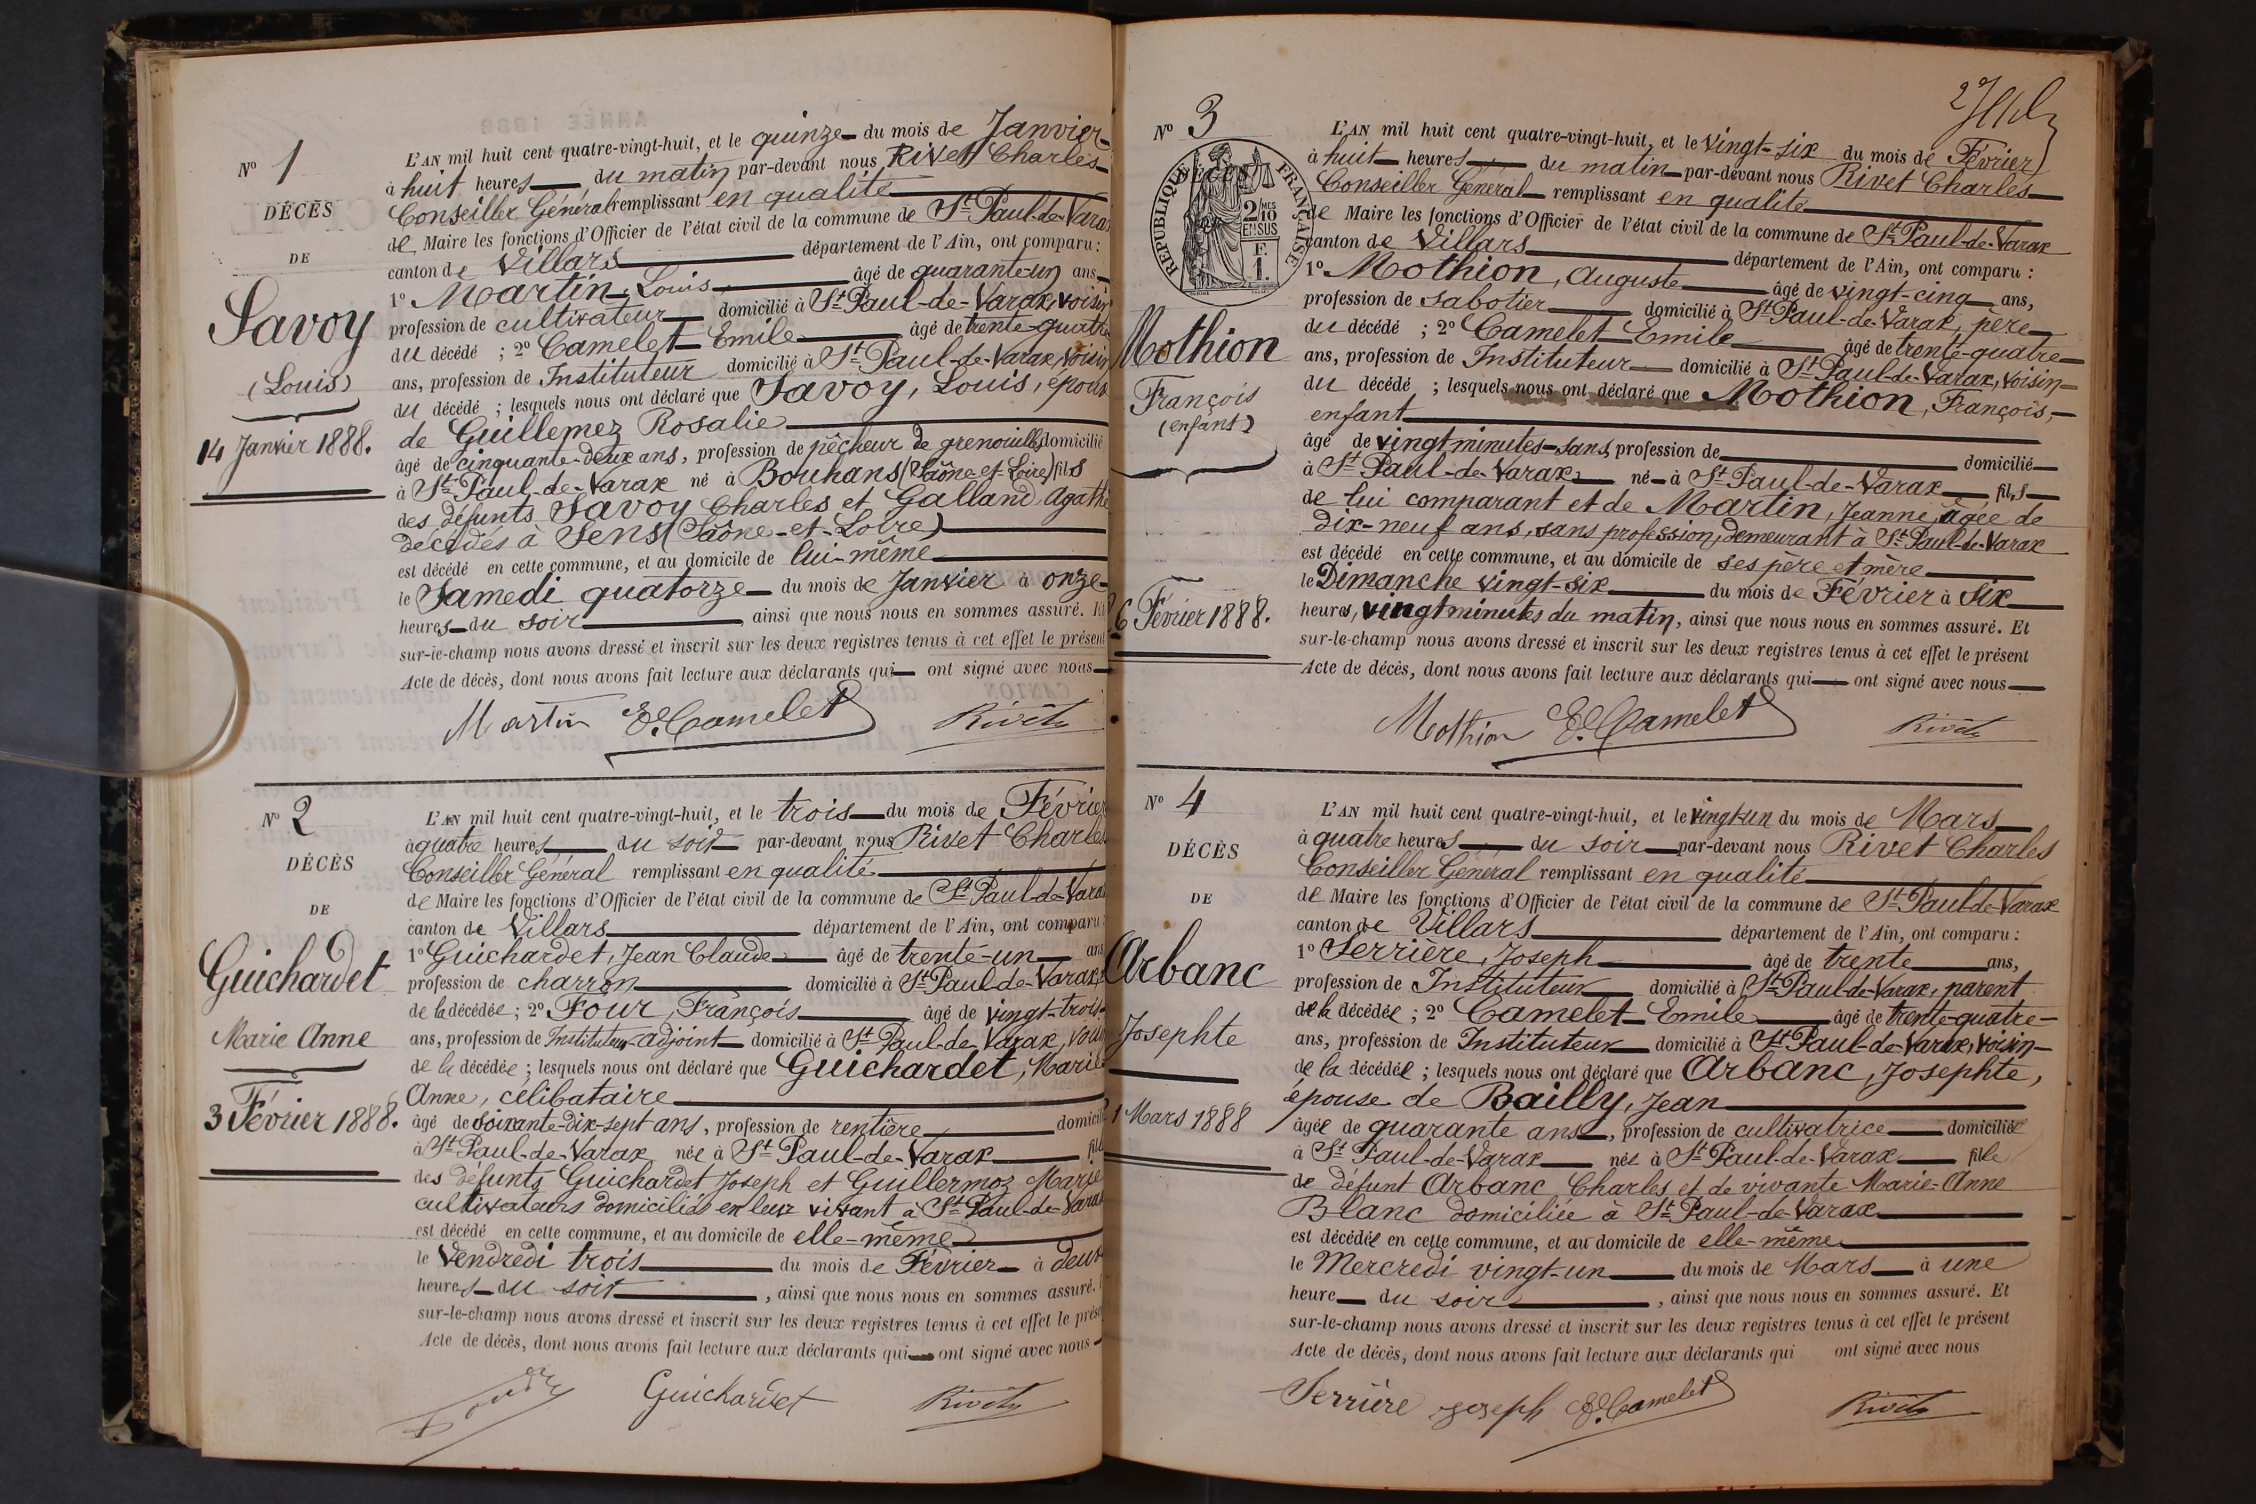 N° 1
DÉCÈS
DE
Savoy
(Louis)
14 Janvier 1888.
L'AN mil huit cent quatre-vingt-huit, et le quinze du mois de Janvier
à huit heures du matin par-devant nous Rivet Charles
Conseiller Général remplissant en qualité
de Maire les fonctions d'Officier de l'état civil de la commune de St Paul-de-Varax
canton de Villars département de l'Ain, ont comparu :
1° Martin, Louis âgé de quarante-un ans
profession de cultivateur domicilié à St Paul-de-Varax, voisin
du décédé ; 2° Camelet Emile âgé de trente-quatre
ans, profession de Instituteur domicilié à St Paul-de-Varax, voisin
du décédé ; lesquels nous ont déclaré que Savoy, Louis, époux
de Guillemez Rosalie
âgé de cinquante-deux ans, profession de pêcheur de grenouilles domicilié
à St Paul-de-Varax né à Bouhans (Saône-et-Loire) fils
des défunts Savoy Charles et Galland Agathe
décédés à Sens (Saône-et-Loire)
est décédé en cette commune, et au domicile de lui-même
le Samedi quatorze du mois de Janvier à onze
heures du soir ainsi que nous nous en sommes assuré. Et
sur-le-champ nous avons dressé et inscrit sur les deux registres tenus à cet effet le présent
Acte de décès, dont nous avons fait lecture aux déclarants qui ont signé avec nous
Martin E. Camelet Rivet
N° 2
DÉCÈS
DE
Guichardet
Marie Anne
3 Février 1888.
L'AN mil huit cent quatre-vingt-huit, et le trois du mois de Février
à quatre heures du soir par-devant nous Rivet Charles
Conseiller Général remplissant en qualité
de Maire les fonctions d'Officier de l'état civil de la commune de St Paul-de-Varax
canton de Villars département de l'Ain, ont comparu :
1° Guichardet, Jean Claude âgé de trente-un ans
profession de charron domicilié à St Paul-de-Varax
de la décédée ; 2° Four, François âgé de vingt-trois
ans, profession de Instituteur adjoint domicilié à St Paul-de-Varax, voisin
de la décédée ; lesquels nous ont déclaré que Guichardet, Marie
Anne, célibataire
âgé de soixante-dix-sept ans, profession de rentière domicilié
à St Paul-de-Varax née à St Paul-de-Varax fille
des défunts Guichardet Joseph et Guillermoz Marie
cultivateurs domiciliés en leur vivant à St Paul-de-Varax
est décédé en cette commune, et au domicile de elle-même
le Vendredi trois du mois de Février à deux
heures du soir, ainsi que nous nous en sommes assuré.
sur-le-champ nous avons dressé et inscrit sur les deux registres tenus à cet effet le présent
Acte de décès, dont nous avons fait lecture aux déclarants qui ont signé avec nous
Guichardet Rivet
N° 3
RÉPUBLIQUE FRANÇAISE
2/10 EN SUS
F. 1.
Mothion
François
(enfant)
6 Février 1888.
L'AN mil huit cent quatre-vingt-huit, et le vingt-six du mois de Février
à huit heures du matin par-devant nous Rivet Charles
Conseiller Général remplissant en qualité
de Maire les fonctions d'Officier de l'état civil de la commune de St Paul-de-Varax
canton de Villars département de l'Ain, ont comparu :
1° Mothion, Auguste âgé de vingt-cinq ans,
profession de sabotier domicilié à St Paul-de-Varax, père
du décédé ; 2° Camelet Emile âgé de trente-quatre
ans, profession de Instituteur domicilié à St Paul-de-Varax, voisin
du décédé ; lesquels nous ont déclaré que Mothion, François,
enfant
âgé de vingt minutes sans profession de domicilié
à St Paul-de-Varax né à St Paul-de-Varax fils
de lui comparant et de Martin, Jeanne, âgée de
dix-neuf ans, sans profession, demeurant à St Paul-de-Varax
est décédé en cette commune, et au domicile de ses père et mère
le Dimanche vingt-six du mois de Février à six
heures, vingt minutes du matin, ainsi que nous nous en sommes assuré. Et
sur-le-champ nous avons dressé et inscrit sur les deux registres tenus à cet effet le présent
Acte de décès, dont nous avons fait lecture aux déclarants qui ont signé avec nous
Mothion E. Camelet Rivet
N° 4
DÉCÈS
DE
Arbanc
Josephte
1 Mars 1888
L'AN mil huit cent quatre-vingt-huit, et le vingt-un du mois de Mars
à quatre heures du soir par-devant nous Rivet Charles
Conseiller Général remplissant en qualité
de Maire les fonctions d'Officier de l'état civil de la commune de St Paul-de-Varax
canton de Villars département de l'Ain, ont comparu :
1° Serrière, Joseph âgé de trente ans,
profession de Instituteur domicilié à St Paul-de-Varax, parent
de la décédée ; 2° Camelet Emile âgé de trente-quatre
ans, profession de Instituteur domicilié à St Paul-de-Varax, voisin
de la décédée ; lesquels nous ont déclaré que Arbanc, Josephte,
épouse de Bailly, Jean
âgée de quarante ans, profession de cultivatrice domiciliée
à St Paul-de-Varax née à St Paul-de-Varax fille
de défunt Arbanc Charles et de vivante Marie-Anne
Blanc domiciliée à St Paul-de-Varax
est décédée en cette commune, et au domicile de elle-même
le Mercredi vingt-un du mois de Mars à une
heure du soir, ainsi que nous nous en sommes assuré. Et
sur-le-champ nous avons dressé et inscrit sur les deux registres tenus à cet effet le présent
Acte de décès, dont nous avons fait lecture aux déclarants qui ont signé avec nous
Serrière Joseph E. Camelet Rivet